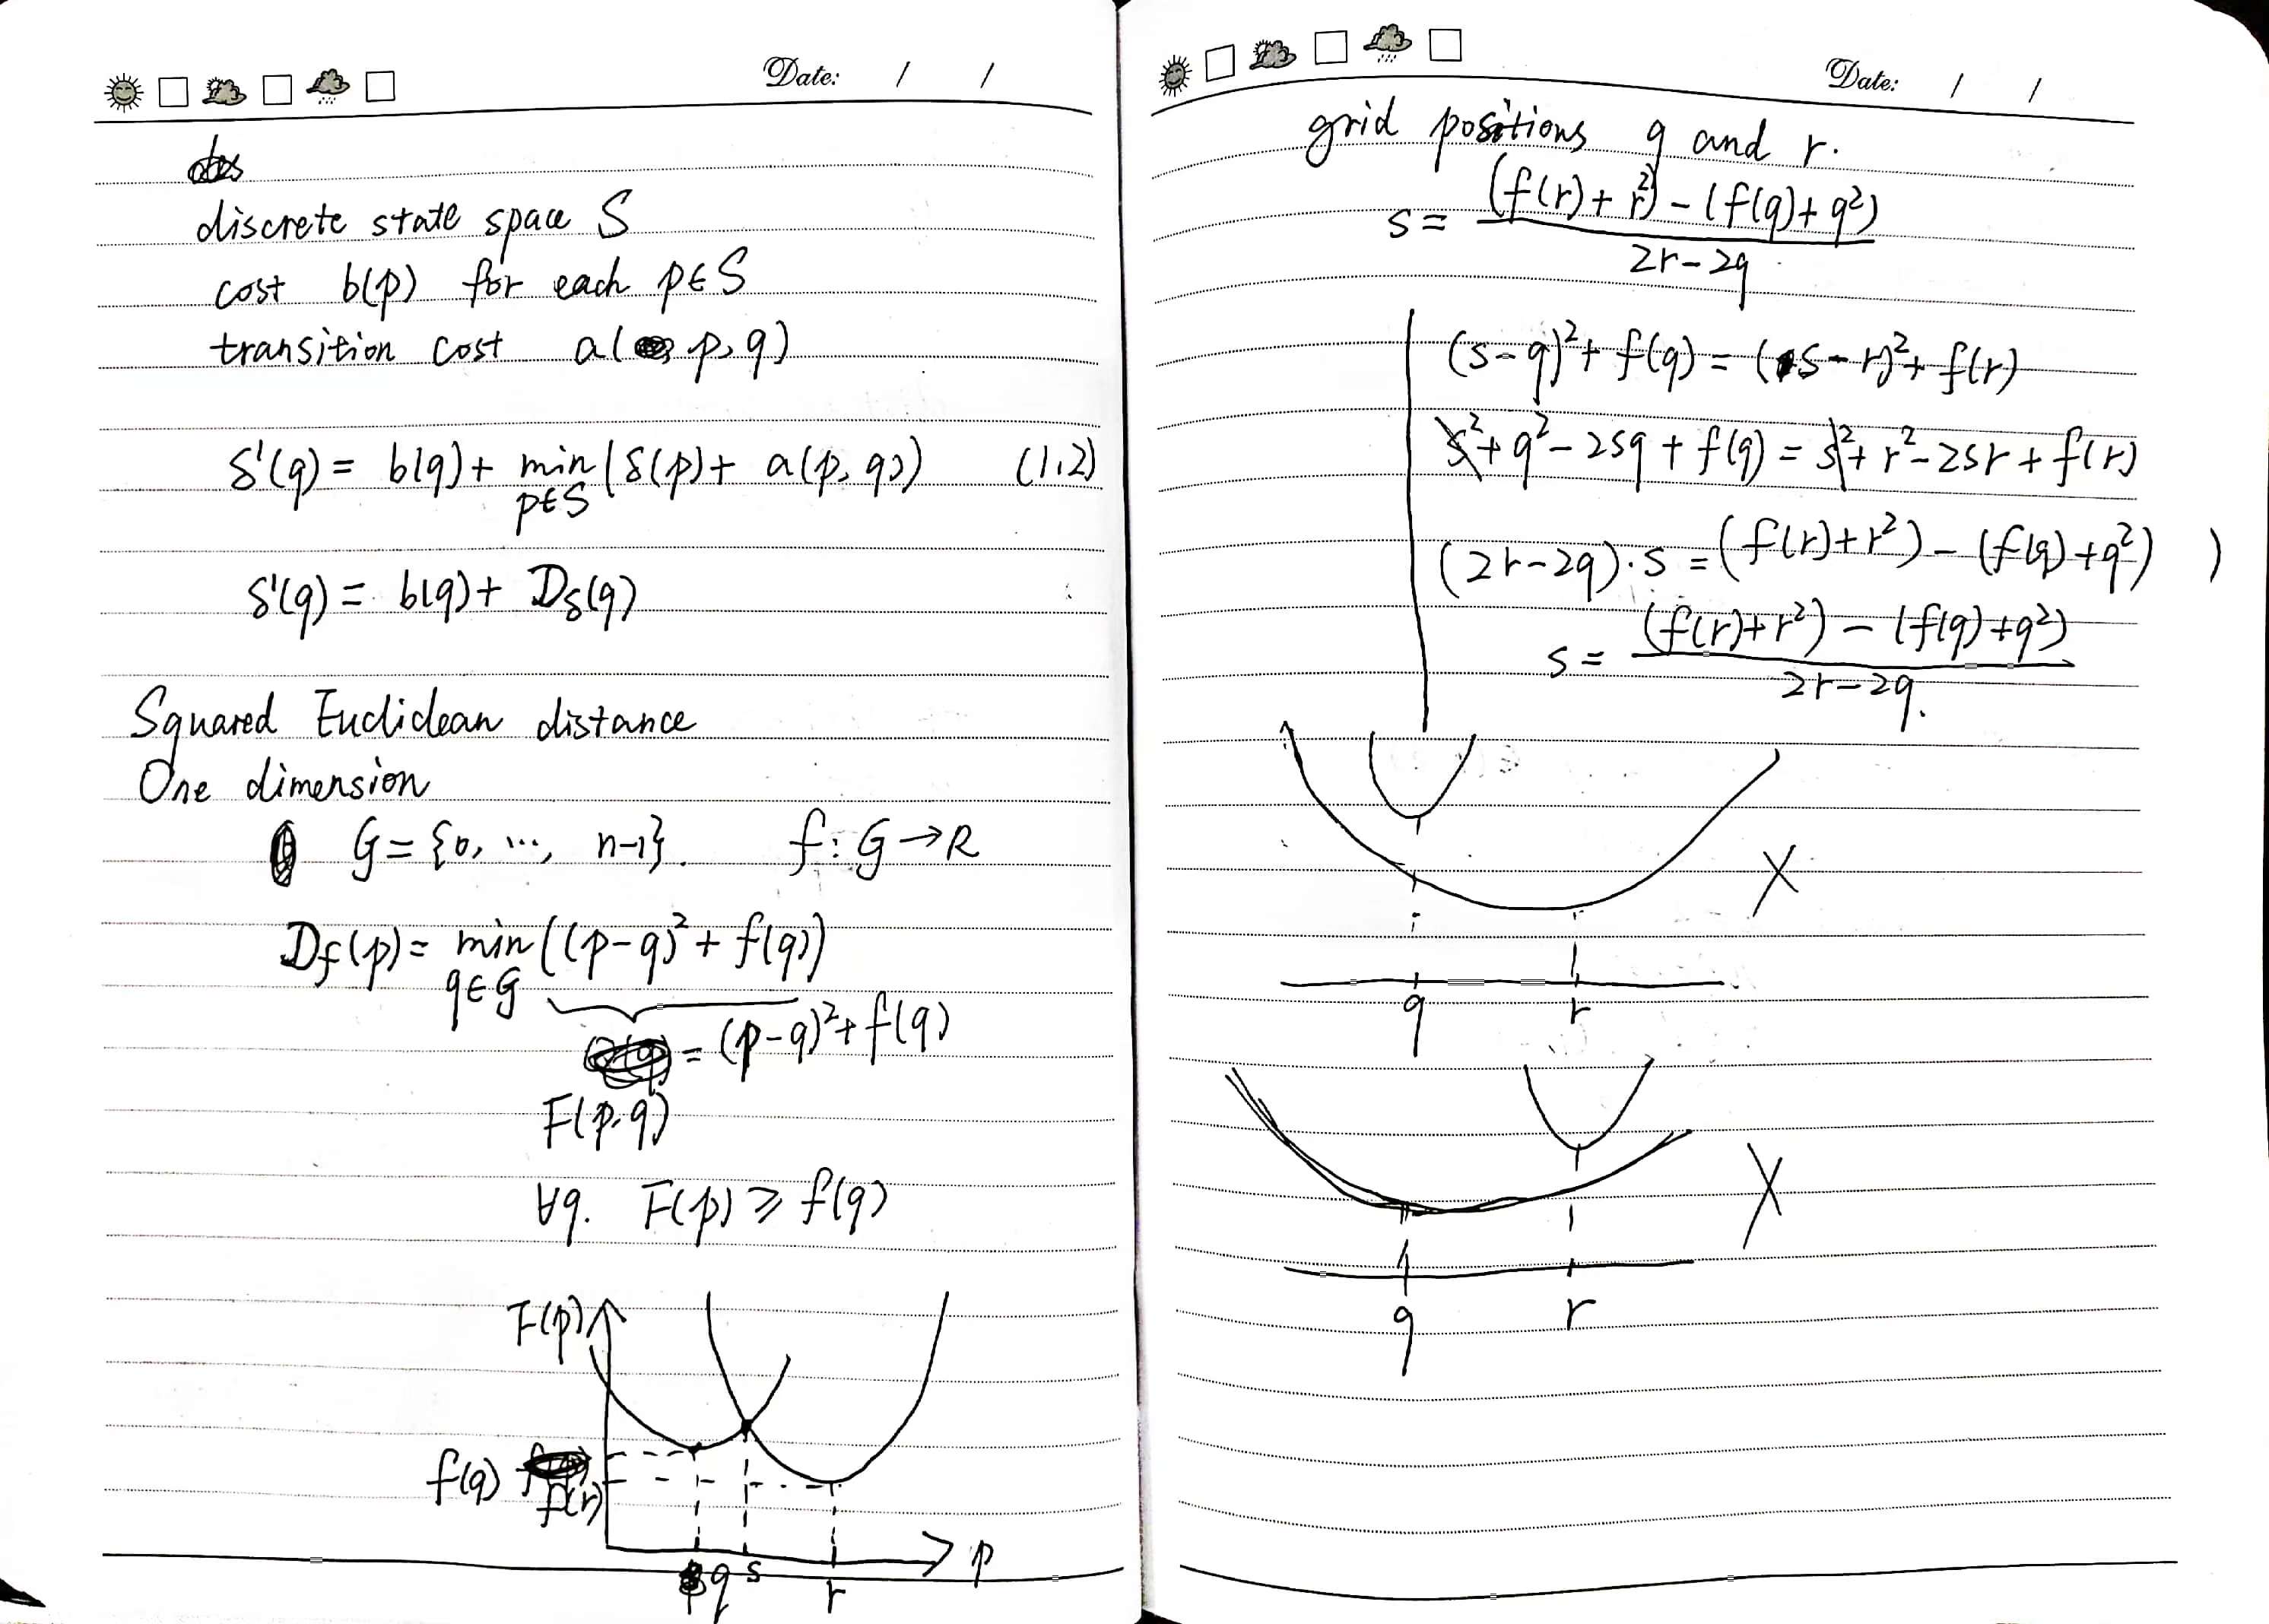 Date: / /
discrete state space S
cost b(p) for each p∈S
transition cost a(p, q)
δ'(q) = b(q) + min (δ(p) + a(p, q)) (1.2)
p∈S
δ'(q) = b(q) + D_δ(q)
Squared Euclidean distance
One dimension
G = {0, ..., n-1}. f: G → R
D_f(p) = min ((p-q)² + f(q))
q∈G
= (p-q)² + f(q)
F(p.q)
∀q. F(p) ⩾ f(q)
F(p)
f(q)
f(r)
q s r p
Date: / /
grid positions q and r.
s = ((f(r) + r²) - (f(q) + q²)) / (2r-2q)
(s-q)² + f(q) = (s-r)² + f(r)
s² + q² - 2sq + f(q) = s² + r² - 2sr + f(r)
(2r-2q)·s = (f(r)+r²) - (f(q)+q²) )
s = ((f(r)+r²) - (f(q)+q²)) / (2r-2q).
X
q r
X
q r